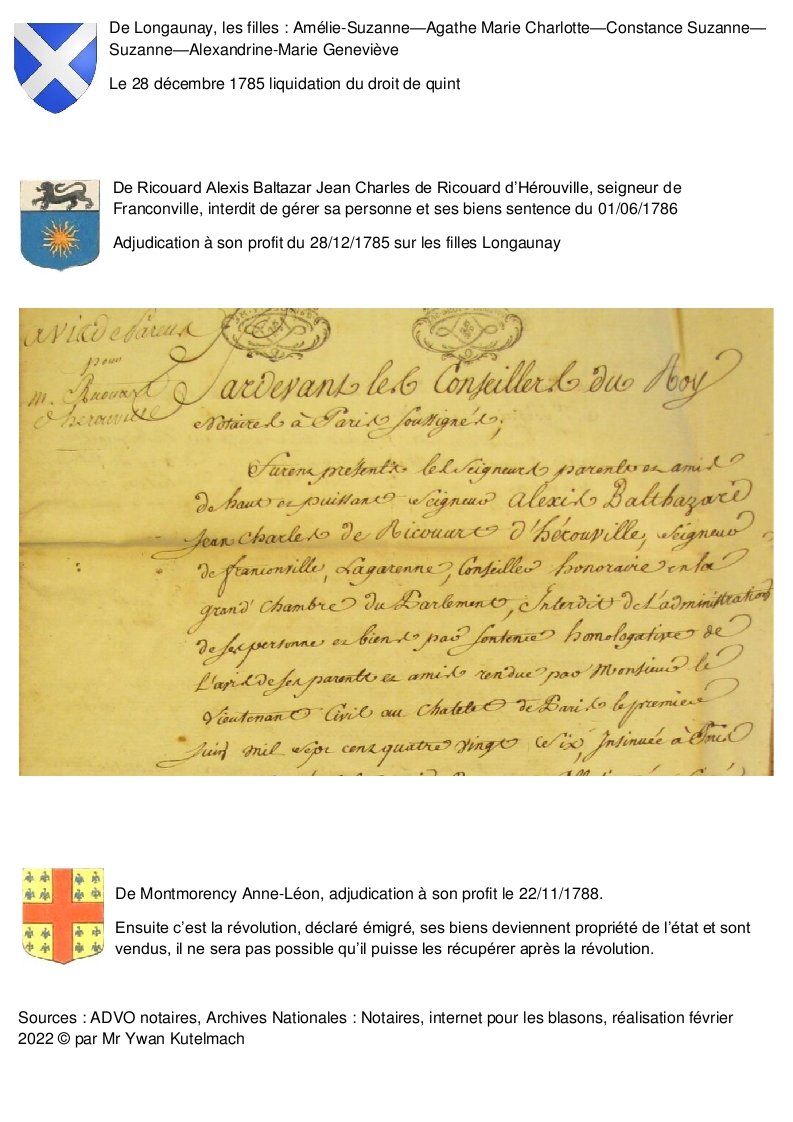 De Longaunay, les filles : Amélie-Suzanne—Agathe Marie Charlotte—Constance Suzanne—
Suzanne—Alexandrine-Marie Geneviève
Le 28 décembre 1785 liquidation du droit de quint
De Ricouard Alexis Baltazar Jean Charles de Ricouard d’Hérouville, seigneur de
Franconville, interdit de gérer sa personne et ses biens sentence du 01/06/1786
Adjudication à son profit du 28/12/1785 sur les filles Longaunay
avis de parens
pour
m. Ricouart
d'herouville
Pardevant les Conseillers du Roy
Notaires à Paris soussignés,
Furent présents les Seigneurs parents et amis
de haut et puissant Seigneur alexis Balthazard
Jean Charles de Ricouart d'hérouville, Seigneur
de franconville, Lagarenne, Conseiller honoraire en la
grand' Chambre du Parlement, Interdit de L'administration
de ses personne et biens par Sentence homologative de
L'avis de ses parents et amis rendue par Monsieur le
Lieutenant Civil au Chatelet de Paris le premier
Juin mil Sept cent quatre vingt Six, Insinuée à Paris
De Montmorency Anne-Léon, adjudication à son profit le 22/11/1788.
Ensuite c’est la révolution, déclaré émigré, ses biens deviennent propriété de l’état et sont
vendus, il ne sera pas possible qu’il puisse les récupérer après la révolution.
Sources : ADVO notaires, Archives Nationales : Notaires, internet pour les blasons, réalisation février
2022 © par Mr Ywan Kutelmach